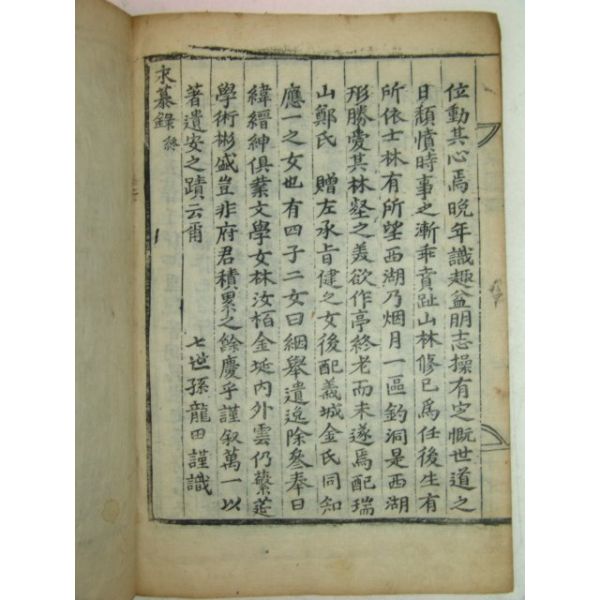 位動其心焉晩年識趣益朋志操有定慨世道之
日頹憤時事之漸乖賁趾山林修已爲任後生有
所依士林有所望西湖乃烟月一區釣洞是西湖
形勝愛其林壑之美欲作亭終老而未遂焉配瑞
山鄭氏 贈左承旨健之女後配義城金氏同知
應一之女也有四子二女曰絪舉遺逸除參奉曰
緯縉紳俱業文學女林汝栢金埏內外雲仍蕃莚
學術彬盛豈非府君積累之餘慶乎謹叙萬一以
著遺安之蹟云爾 七世孫龍田謹識
永慕錄 終